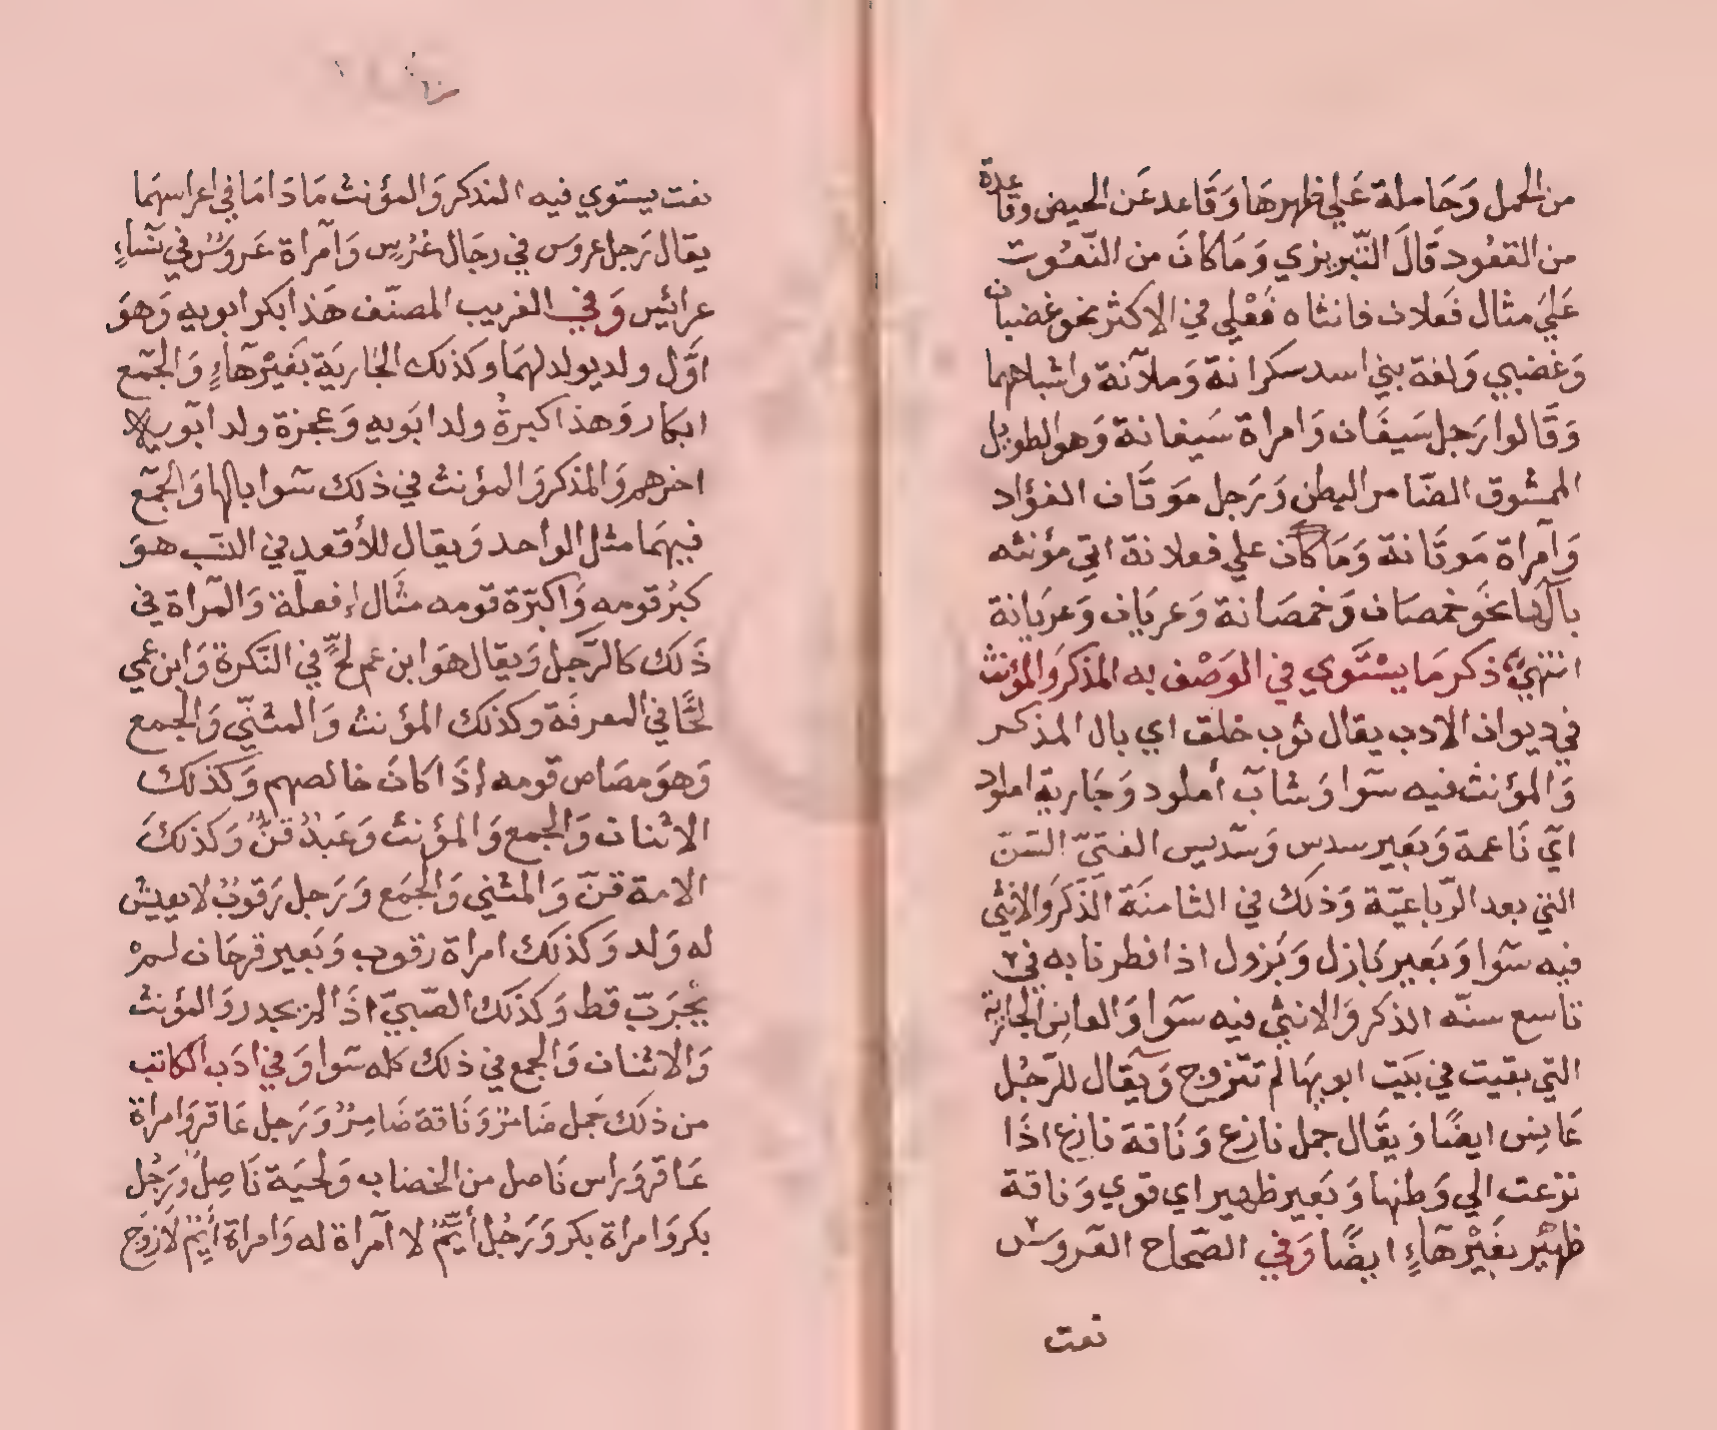 من الحمل وَحَاملة عَلي ظهرهَا وَقَاعد عَن الحيض وقاعدة
من القعُود قَالَ التّبريزي وَمَا كانَ من النّعُوت
عَليَ مثال فَعلان فانثاه فَعْلي في الاكثر نحو غضبان
وَغضبي وَلغة بني اسد سكرانة وَملآنة واشباههما
وَقَالوا رَجل سَيفَان وَامراة سَيفانة وَهو الطويل
الممشوق الضّامر البطن وَرَجل مَوتَان الفؤاد
وَآمراة مَوتَانة وَمَا كان علي فعلانة اتي مؤنثه
بالهَا نحَو خمصَان وَخمصَانة وَعريَان وَعريَانة
انتهيَ ذكر مَا يسْتَوي في الوَصْف به المذكر وَالمؤنث
في ديوان الادب يقال ثوب خلق اي بال المذكر
وَالمؤنث فيه سَوا وَشابّ أملود وَجَارية املود
ايّ نَاعمة وَبَعير سدس وَسَديس الفتيّ السّن
التي بعد الرّباعيّة وَذلك في الثامنَة الذّكر وَالانثي
فيه سَوا وَبَعير بَازل وَبَزول اذا فطر نابه في
تاسع سنّه الذكر وَالانثي فيه سَوا وَالعانِس الجارية
التي بقيت في بَيت ابويهَا لم تتزوج وَيقَال للرّجُل
عَانِس ايضًا وَيقَال جمل نازع وَنَاقة نازع اذَا
نزعت الي وَطنها وَبَعير ظهير اي قوي وَناقة
ظهيْر بغَيْر هَآءٍ ايضًا وَفي الصّحاح العَروس
نعت
نعت يستوي فيه المذكر وَالمؤنث مَا دَامَا في اعراسهمَا
يقال رَجل عروس في رجَال عُرُسٍ وَآمراة عَروسٌ في نسَاءٍ
عرائس وَفي الغريب المصنّف هَذا بكر ابويه وَهوَ
اوَّل ولد يولد لهمَا وكذلك الجَاريَة بغَيْر هَاءٍ وَالجَمع
ابكار وَهذا كبرةُ ولد ابَويه وَعجزة ولد ابَويه
اخرهم وَالمذكر وَالمؤنث في ذلك سَوا بالها وَالجَمع
فيهمَا مثل الواحد وَيقال للأقعد في النسَب هوَ
كبرُ قومه وَاكبرّة قومه مثَال إفعلّة وَالمَراة في
ذَلك كالرّجل وَيقال هوَ ابن عم لحٍّ في النَكرة وَابن عمي
لحًّا في المعرفَة وكذلك المؤنث وَالمثنّي وَالجمع
وَهوَ مصَاص قومه إذَا كانَ خالصهم وَكذلك
الاثنان وَالجمع وَالمؤنث وَعَبْدٌ قنٌّ وَكذلكَ
الامة قنّ وَالمثني وَالجمَع وَرَجل رَقوبٌ لا يعيش
له وَلد وَكذلك امراة رقوب وَبَعير قرحَان لمْ
يُجْرَبّ قط وَكذلك الصّبيّ اذَا لم يجدر وَالمؤنث
وَالاثنان وَالجمع في ذلك كله سَوا وَفي ادَب الكاتب
من ذلكَ جَمل ضَامرٌ وَنَاقة ضَامِرٌ وَرَجل عَاقر وَامراة
عَاقر وَرَاس نَاصل من الخضاب وَلحيَة نَاصِل وَرَجُل
بكر وَامراة بكر وَرَجُل أيّمٌ لا آمراة له وَامراة أيّمٌ لَا زوَج